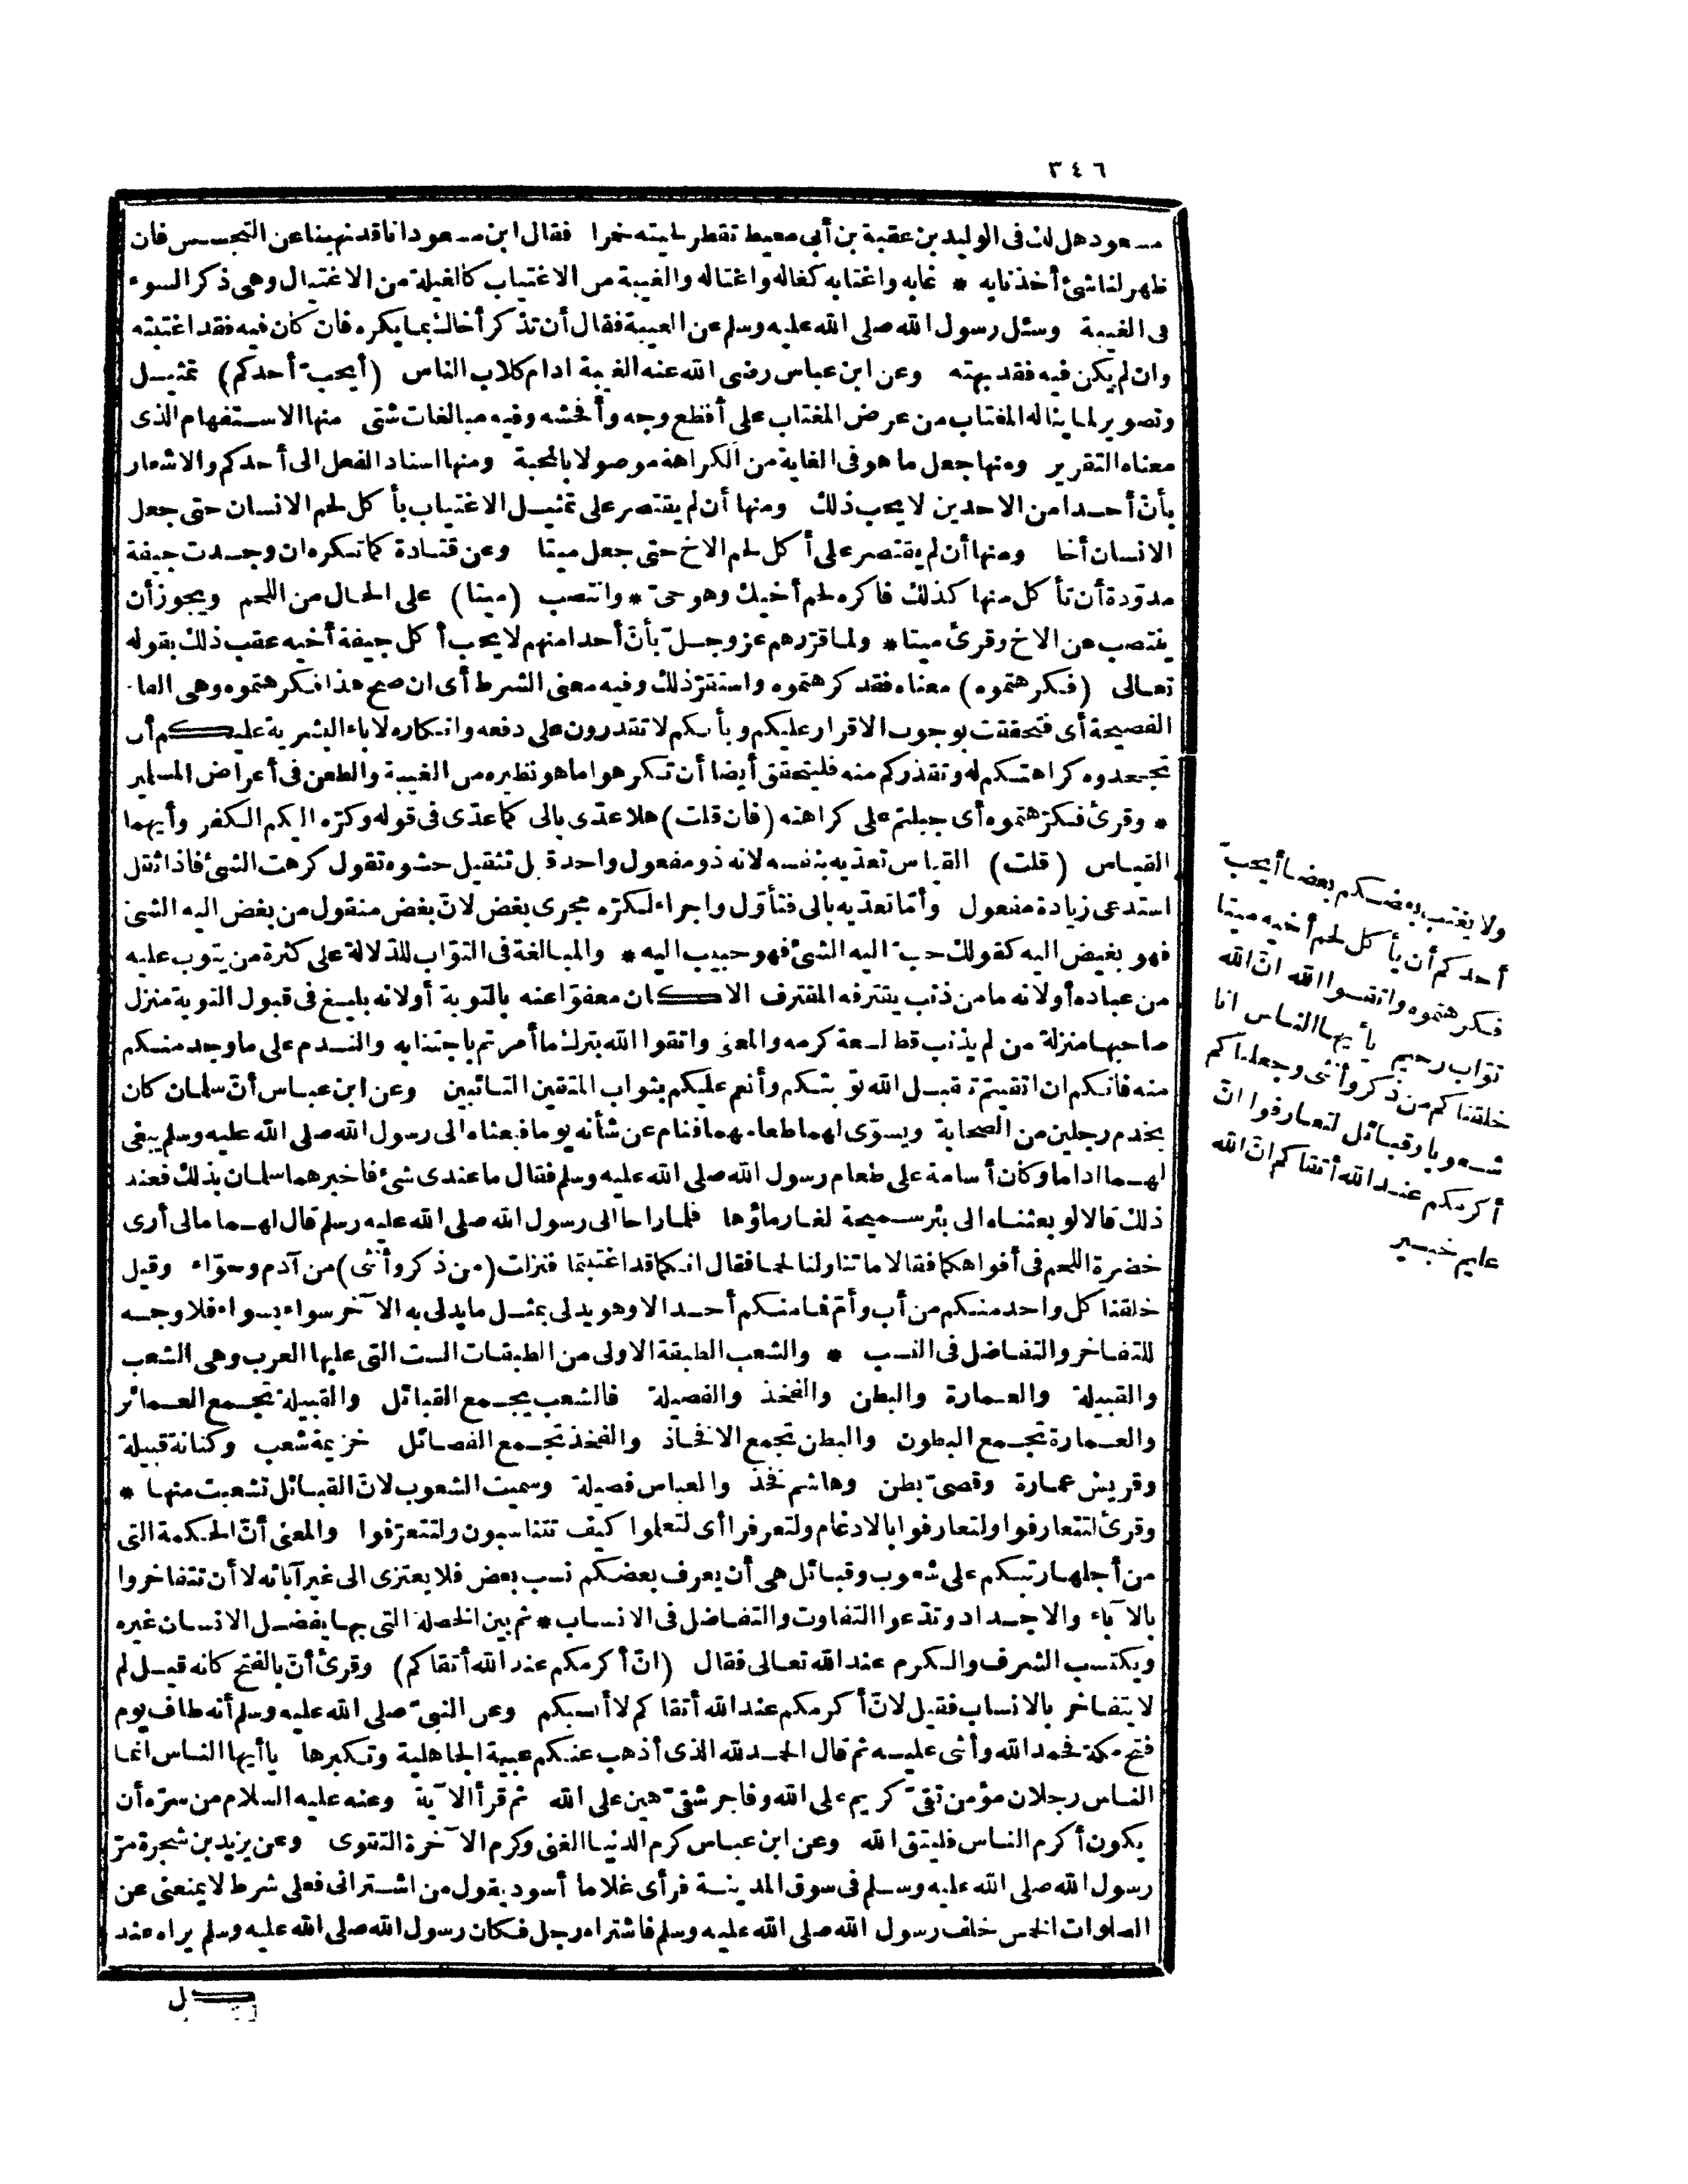 ٣٤٦
مسعود هل لك فى الوليد بن عقبة بن أبى معيط تقطر لحيته خمرا فقال ابن مسعود انا قد نهينا عن التجسس فان
ظهر لنا شئ أخذنا به * غابه واغتابه كغاله واغتاله والغيبة من الاغتياب كالغيلة من الاغتيال وهى ذكر السوء
فى الغيبة وسئل رسول الله صلى الله عليه وسلم عن الغيبة فقال أن تذكر أخاك بما يكره فان كان فيه فقد اغتبته
وان لم يكن فيه فقد بهته وعن ابن عباس رضى الله عنه الغيبة ادام كلاب الناس (أيحبّ أحدكم) تمثيل
وتصوير لما يناله المغتاب من عرض المغتاب على أفظع وجه وأفحشه وفيه مبالغات شتى منها الاستفهام الذى
معناه التقرير ومنها جعل ما هو فى الغاية من الكراهة موصولا بالمحبة ومنها اسناد الفعل الى أحدكم والاشعار
بأنّ أحدا من الاحدين لا يحب ذلك ومنها أن لم يقتصر على تمثيل الاغتياب بأكل لحم الانسان حتى جعل
الانسان أخا ومنها أن لم يقتصر على أكل لحم الاخ حتى جعل ميتا وعن قتادة كما تكره ان وجدت جيفة
مدوّدة أن تأكل منها كذلك فاكره لحم أخيك وهو حىّ * وانتصب (ميتا) على الحال من اللحم ويجوز أن
ينتصب عن الاخ وقرئ ميتا * ولما قرّرهم عز وجلّ بأنّ أحدا منهم لا يحب أكل جيفة أخيه عقب ذلك بقوله
تعالى (فكرهتموه) معناه فقد كرهتموه واستقرّ ذلك وفيه معنى الشرط أى ان صح هذا فكرهتموه وهى الفاء
الفصيحة أى فتحققت بوجوب الاقرار عليكم وبأنكم لا تقدرون على دفعه وانكاره لاباء البشرية عليكم أن
تجحدوه كراهتكم له وتقذركم منه فليتحقق أيضا أن تكرهوا ما هو نظيره من الغيبة والطعن فى أعراض المسلمين
* وقرئ فكرّهتموه أى جبلتم على كراهته (فان قلت) هلا عدّى بالى كما عدّى فى قوله وكرّه اليكم الكفر وأيهما
القياس (قلت) القياس تعدّيه بنفسه لانه ذو مفعول واحد قبل تثقيل حشوه تقول كرهت الشئ فاذا ثقل
استدعى زيادة مفعول وأمّا تعدّيه بالى فتأوّل واجراء لكرّه مجرى بغض لانّ بغض منقول من بغض اليه الشئ
فهو بغيض اليه كقولك حبّ اليه الشئ فهو حبيب اليه * والمبالغة فى التوّاب للدّلالة على كثرة من يتوب عليه
من عباده أو لانه ما من ذنب يقترفه المقترف الا كان معفوّا عنه بالتوبة أو لانه بليغ فى قبول التوبة منزل
صاحبها منزلة من لم يذنب قط لسعة كرمه والمعنى واتقوا الله بترك ما أمرتم باجتنابه والندم على ما وجد منكم
منه فانكم ان اتقيتم تقبل الله توبتكم وأنعم عليكم بثواب المتقين التائبين وعن ابن عباس أنّ سلمان كان
يخدم رجلين من الصحابة ويسوّى لهما طعامهما فنام عن شأنه يوما فبعثاه الى رسول الله صلى الله عليه وسلم يبغى
لهما اداما وكان أسامة على طعام رسول الله صلى الله عليه وسلم فقال ما عندى شئ فاخبرهما سلمان بذلك فعند
ذلك قالا لو بعثناه الى بئر سميحة لغار ماؤها فلما راحا الى رسول الله صلى الله عليه وسلم قال لهما مالى أرى
خضرة اللحم فى أفواهكما فقالا ما تناولنا لحما فقال انكما قد اغتبتما فنزلت (من ذكر وأنثى) من آدم وحوّاء وقيل
خلقنا كل واحد منكم من أب وأمّ فما منكم أحد الا وهو يدلى بمثل ما يدلى به الآخر سواء بسواء فلا وجه
للتفاخر والتفاضل فى النسب * والشعب الطبقة الاولى من الطبقات الست التى عليها العرب وهى الشعب
والقبيلة والعمارة والبطن والفخذ والفصيلة فالشعب يجمع القبائل والقبيلة تجمع العمائر
والعمارة تجمع البطون والبطن تجمع الافخاذ والفخذ تجمع الفصائل خزيمة شعب وكنانة قبيلة
وقريش عمارة وقصىّ بطن وهاشم فخذ والعباس فصيلة وسميت الشعوب لانّ القبائل تشعبت منها *
وقرئ لتتعارفوا ولتعارفوا بالادغام ولتعرفوا أى لتعلموا كيف تتناسبون ولتتعرّفوا والمعنى أنّ الحكمة التى
من أجلها رتبكم على شعوب وقبائل هى أن يعرف بعضكم نسب بعض فلا يعتزى الى غير آبائه لا أن تتفاخروا
بالآباء والاجداد وتدّعوا التفاوت والتفاضل فى الانساب * ثم بين الخصلة التى بها يفضل الانسان غيره
ويكتسب الشرف والكرم عند الله تعالى فقال (انّ أكرمكم عند الله أتقاكم) وقرئ أنّ بالفتح كانه قيل لم
لا يتفاخر بالانساب فقيل لانّ أكرمكم عند الله أتقاكم لا أنسبكم وعن النبىّ صلى الله عليه وسلم أنه طاف يوم
فتح مكة فحمد الله وأثنى عليه ثم قال الحمد لله الذى أذهب عنكم عبية الجاهلية وتكبرها يا أيها الناس انما
الناس رجلان مؤمن تقىّ كريم على الله وفاجر شقىّ هين على الله ثم قرأ الآية وعنه عليه السلام من سرّه أن
يكون أكرم الناس فليتق الله وعن ابن عباس كرم الدنيا الغنى وكرم الآخرة التقوى وعن يزيد بن شجرة مرّ
رسول الله صلى الله عليه وسلم فى سوق المدينة فرأى غلاما أسود يقول من اشترانى فعلى شرط لا يمنعنى عن
الصلوات الخمس خلف رسول الله صلى الله عليه وسلم فاشتراه رجل فكان رسول الله صلى الله عليه وسلم يراه عند
ولا يغتب بعضكم بعضا أيحبّ
أحدكم أن يأكل لحم أخيه ميتا
فكرهتموه واتقوا الله انّ الله
توّاب رحيم يأيها الناس انا
خلقناكم من ذكر وأنثى وجعلناكم
شعوبا وقبائل لتعارفوا انّ
أكرمكم عند الله أتقاكم انّ الله
عليم خبير